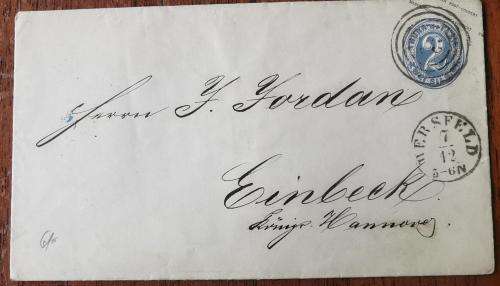 2
Herrn F. Jordan
HERSFELD
7
12
5-6N
Einbeck
Königr. Hannover.